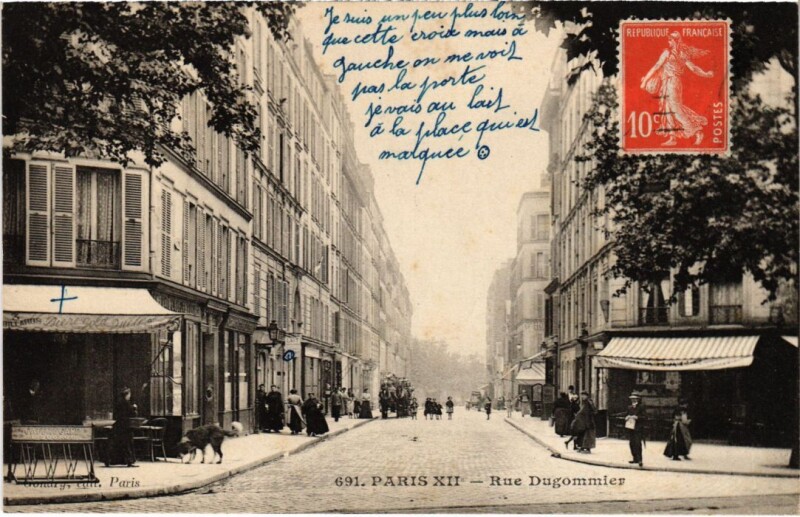 Je suis un peu plus loin
que cette croix mais à
gauche on ne voit
pas la porte
je vais au lait
à la place qui est
marquée
REPUBLIQUE FRANÇAISE
10c POSTES
Gondry, édit. Paris
691. PARIS XII — Rue Dugommier